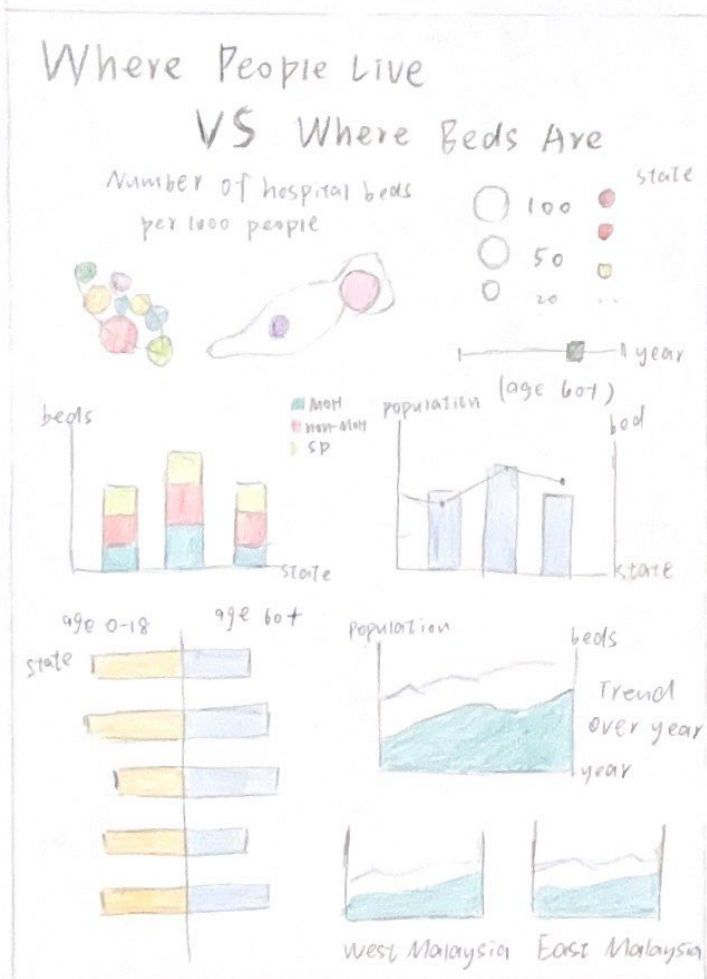 Where People Live
VS Where Beds Are
Number of hospital beds
per 1000 people
state
100
50
20 ...
year
beds
MOH
non-MOH
SP
state
population (age 60+)
bed
state
age 0-18 age 60+
state
population
beds
Trend
over year
year
West Malaysia East Malaysia